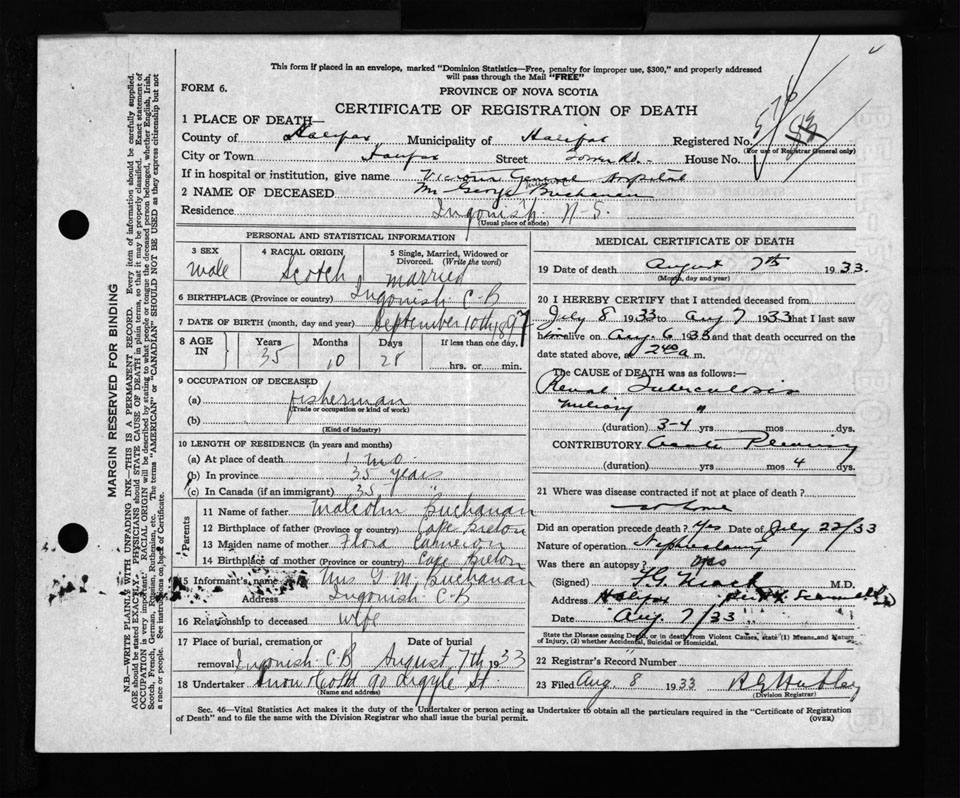 This form if placed in an envelope, marked "Dominion Statistics—Free, penalty for improper use, $300," and properly addressed
will pass through the Mail "FREE"
FORM 6.
PROVINCE OF NOVA SCOTIA
CERTIFICATE OF REGISTRATION OF DEATH
1 PLACE OF DEATH—
County of Halifax Municipality of Halifax Registered No.
(For use of Registrar General only)
City or Town Halifax Street Tower Rd. House No.
If in hospital or institution, give name Victoria General Hospital
2 NAME OF DECEASED Mr George Buchanan
Residence Ingonish N-S.
(Usual place of abode)
PERSONAL AND STATISTICAL INFORMATION
3 SEX 4 RACIAL ORIGIN 5 Single, Married, Widowed or
Divorced. (Write the word)
male Scotch married
6 BIRTHPLACE (Province or country) Ingonish C-B
7 DATE OF BIRTH (month, day and year) September 10th 1897
8 AGE IN Years Months Days If less than one day,
35 10 28 hrs. or min.
9 OCCUPATION OF DECEASED
(a) fisherman
(Trade or occupation or kind of work)
(b)
(Kind of industry)
10 LENGTH OF RESIDENCE (in years and months)
(a) At place of death 1 mo.
(b) In province 35 years
(c) In Canada (if an immigrant) 35 "
Parents
11 Name of father Malcolm Buchanan
12 Birthplace of father (Province or country) Cape Breton
13 Maiden name of mother Flora Cameron
14 Birthplace of mother (Province or country) Cape Breton
15 Informant's name Mrs G M Buchanan
Address Ingonish C-B
16 Relationship to deceased wife
17 Place of burial, cremation or Date of burial
removal Ingonish C.B August 7th 1933
18 Undertaker Snow & Co Ltd 90 Argyle St.
(Name and address)
MEDICAL CERTIFICATE OF DEATH
19 Date of death August 7th 1933.
(Month, day and year)
20 I HEREBY CERTIFY that I attended deceased from
July 8 1933 to Aug 7 1933 that I last saw
him alive on Aug. 6 1933 and that death occurred on the
date stated above, at 2 40 a m.
The CAUSE of DEATH was as follows:
Renal Tuberculosis
Miliary "
(duration) 3-4 yrs mos dys.
CONTRIBUTORY Acute Pleurisy
(duration) yrs mos 4 dys.
21 Where was disease contracted if not at place of death?
at home
Did an operation precede death? Yes Date of July 22/33
Nature of operation Nephrectomy
Was there an autopsy?
(Signed) F G Mack M.D.
Address Halifax
Date Aug. 7/33
State the Disease causing Death, or in death from Violent Causes, state (1) Means and Nature
of Injury, (2) whether Accidental, Suicidal or Homicidal.
22 Registrar's Record Number
23 Filed Aug 8 1933
(Division Registrar)
Sec. 46—Vital Statistics Act makes it the duty of the Undertaker or person acting as Undertaker to obtain all the particulars required in the "Certificate of Registration
of Death" and to file the same with the Division Registrar who shall issue the burial permit. (OVER)
MARGIN RESERVED FOR BINDING
N.B.—WRITE PLAINLY WITH UNFADING INK—THIS IS A PERMANENT RECORD. Every item of information should be carefully supplied.
AGE should be stated EXACTLY. PHYSICIANS should state CAUSE OF DEATH in plain terms, so that it may be properly classified. Exact statement of
OCCUPATION is very important. RACIAL ORIGIN will be described by stating to what people or tongue the deceased person belonged, whether English, Irish,
Scotch, French, German, Russian, Ruthenian, etc. The terms "AMERICAN" or "CANADIAN" SHOULD NOT BE USED as they express citizenship but not
a race or people. See instructions on back of Certificate.